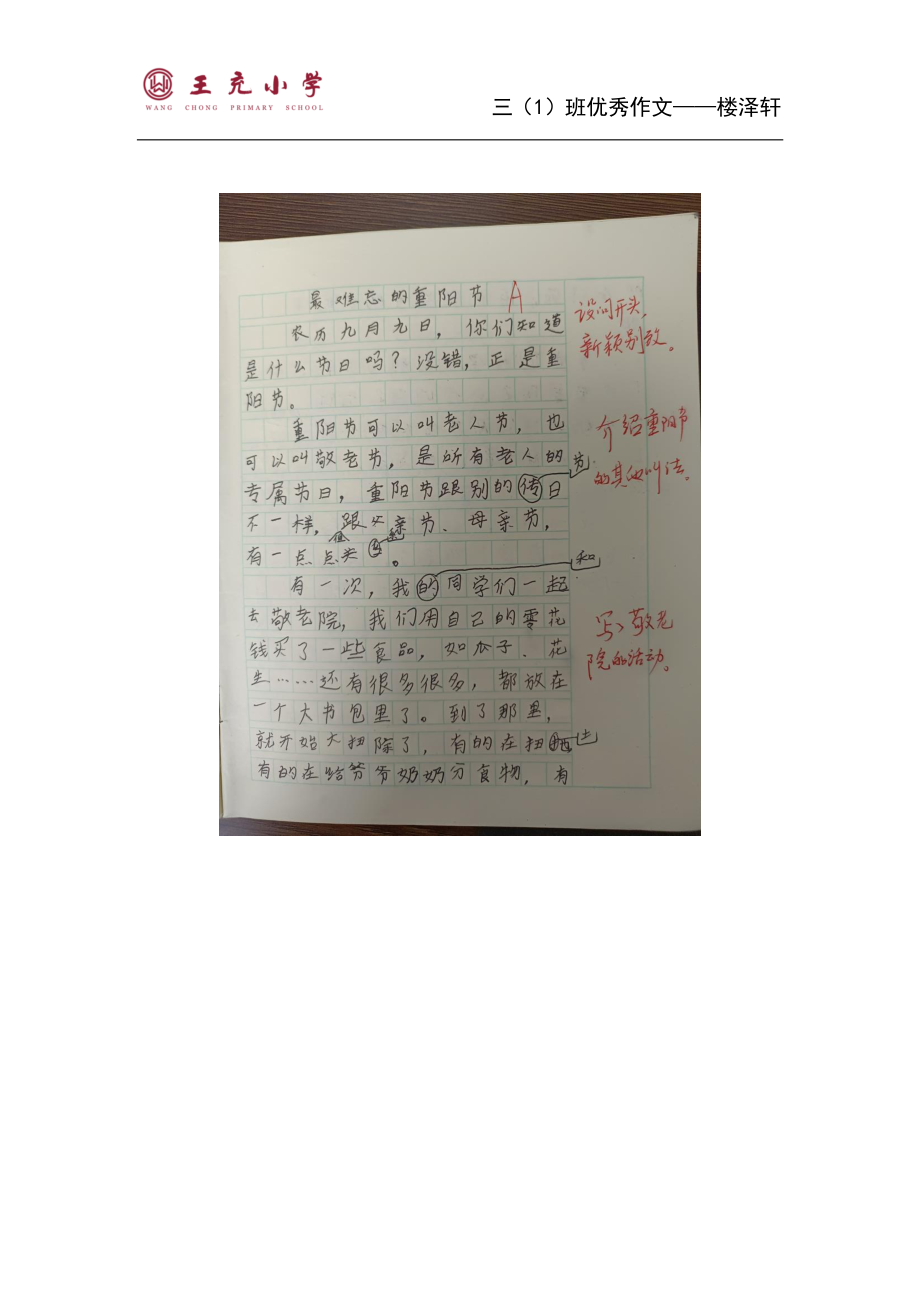 王充小学
WANG CHONG PRIMARY SCHOOL
三（1）班优秀作文——楼泽轩
最难忘的重阳节 A
农历九月九日，你们知道
是什么节日吗？没错，正是重
阳节。
重阳节可以叫老人节，也
可以叫敬老节，是所有老人的
专属节日，重阳节跟别的传日
节
不一样，跟父亲节、母亲节，
但
有一点点类 。
有一次，我的同学们一起
和
去敬老院，我们用自己的零花
钱买了一些食品，如瓜子、花
生……还有很多很多，都放在
一个大书包里了。到了那里，
就开始大扫除了，有的在扫
有的在给爷爷奶奶分食物，有
设问开头，
新颖别致。
介绍重阳节
的其他叫法。
写敬老
院的活动。